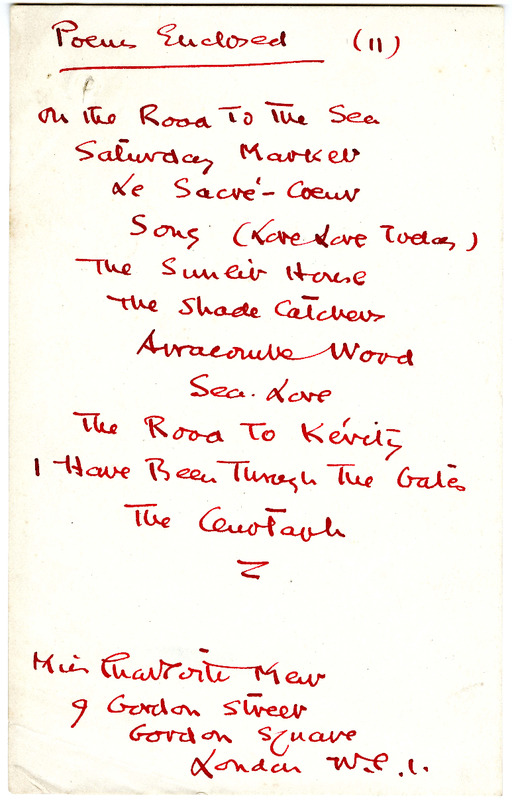 Poems Enclosed (11)
On the Road To The Sea
Saturday Market
Le Sacré-Coeur
Song (Love Love Today)
The Sunlit House
The Shade Catchers
Arracombe Wood
Sea. Love
The Road To Kérity
I Have Been Through The Gates
The Cenotaph
Miss Charlotte Mew
9 Gordon Street
Gordon Square
London W.C.1.